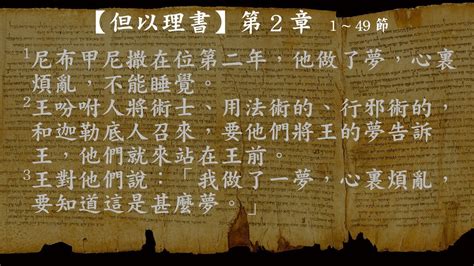 【但以理書】第 2 章 1 ~ 49 節
1尼布甲尼撒在位第二年，他做了夢，心裏
煩亂，不能睡覺。
2王吩咐人將術士、用法術的、行邪術的，
和迦勒底人召來，要他們將王的夢告訴
王，他們就來站在王前。
3王對他們說：「我做了一夢，心裏煩亂，
要知道這是甚麼夢。」